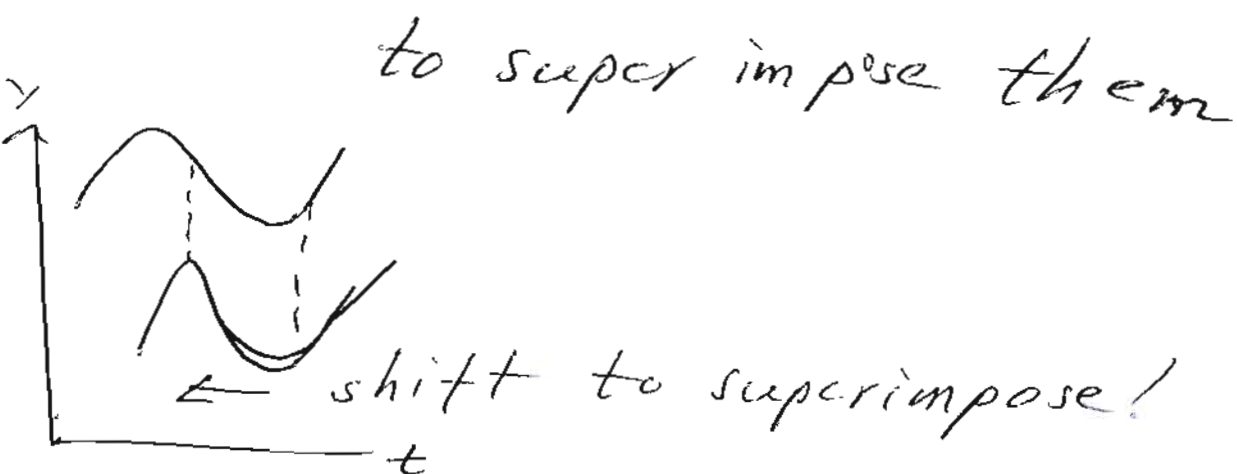 to super impose them
y
← shift to superimpose!
t